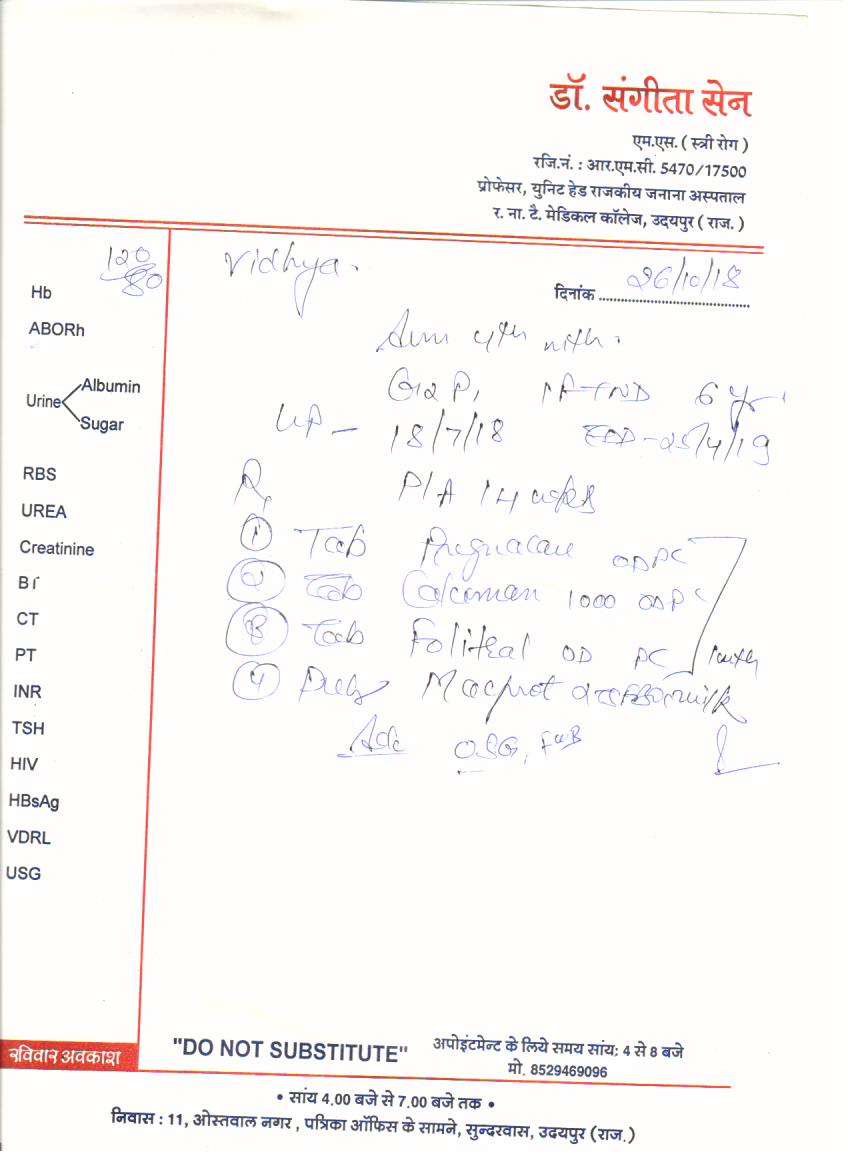 डॉ. संगीता सेन
एम.एस. ( स्त्री रोग )
रजि.नं. : आर.एम.सी. 5470/17500
प्रोफेसर, युनिट हेड राजकीय जनाना अस्पताल
र. ना. टै. मेडिकल कॉलेज, उदयपुर ( राज. )
120/80
Vidhya.
दिनांक 26/10/18
4th mth.
G2P1 FTND 6 yr
LMP - 18/7/18 EDD - 25/4/19
Rx P/A 14 wks
① Tab Pregnacare OD PC
② Tab 1000 OD PC
③ Tab OD PC 1 mth
④ milk
Adv USG, FWB
Hb
ABORh
Urine Albumin
Sugar
RBS
UREA
Creatinine
BT
CT
PT
INR
TSH
HIV
HBsAg
VDRL
USG
रविवार अवकाश
"DO NOT SUBSTITUTE"
अपोइंटमेन्ट के लिये समय सांय: 4 से 8 बजे
मो. 8529469096
• सांय 4.00 बजे से 7.00 बजे तक •
निवास : 11, ओस्तवाल नगर , पत्रिका ऑफिस के सामने, सुन्दरवास, उदयपुर (राज.)